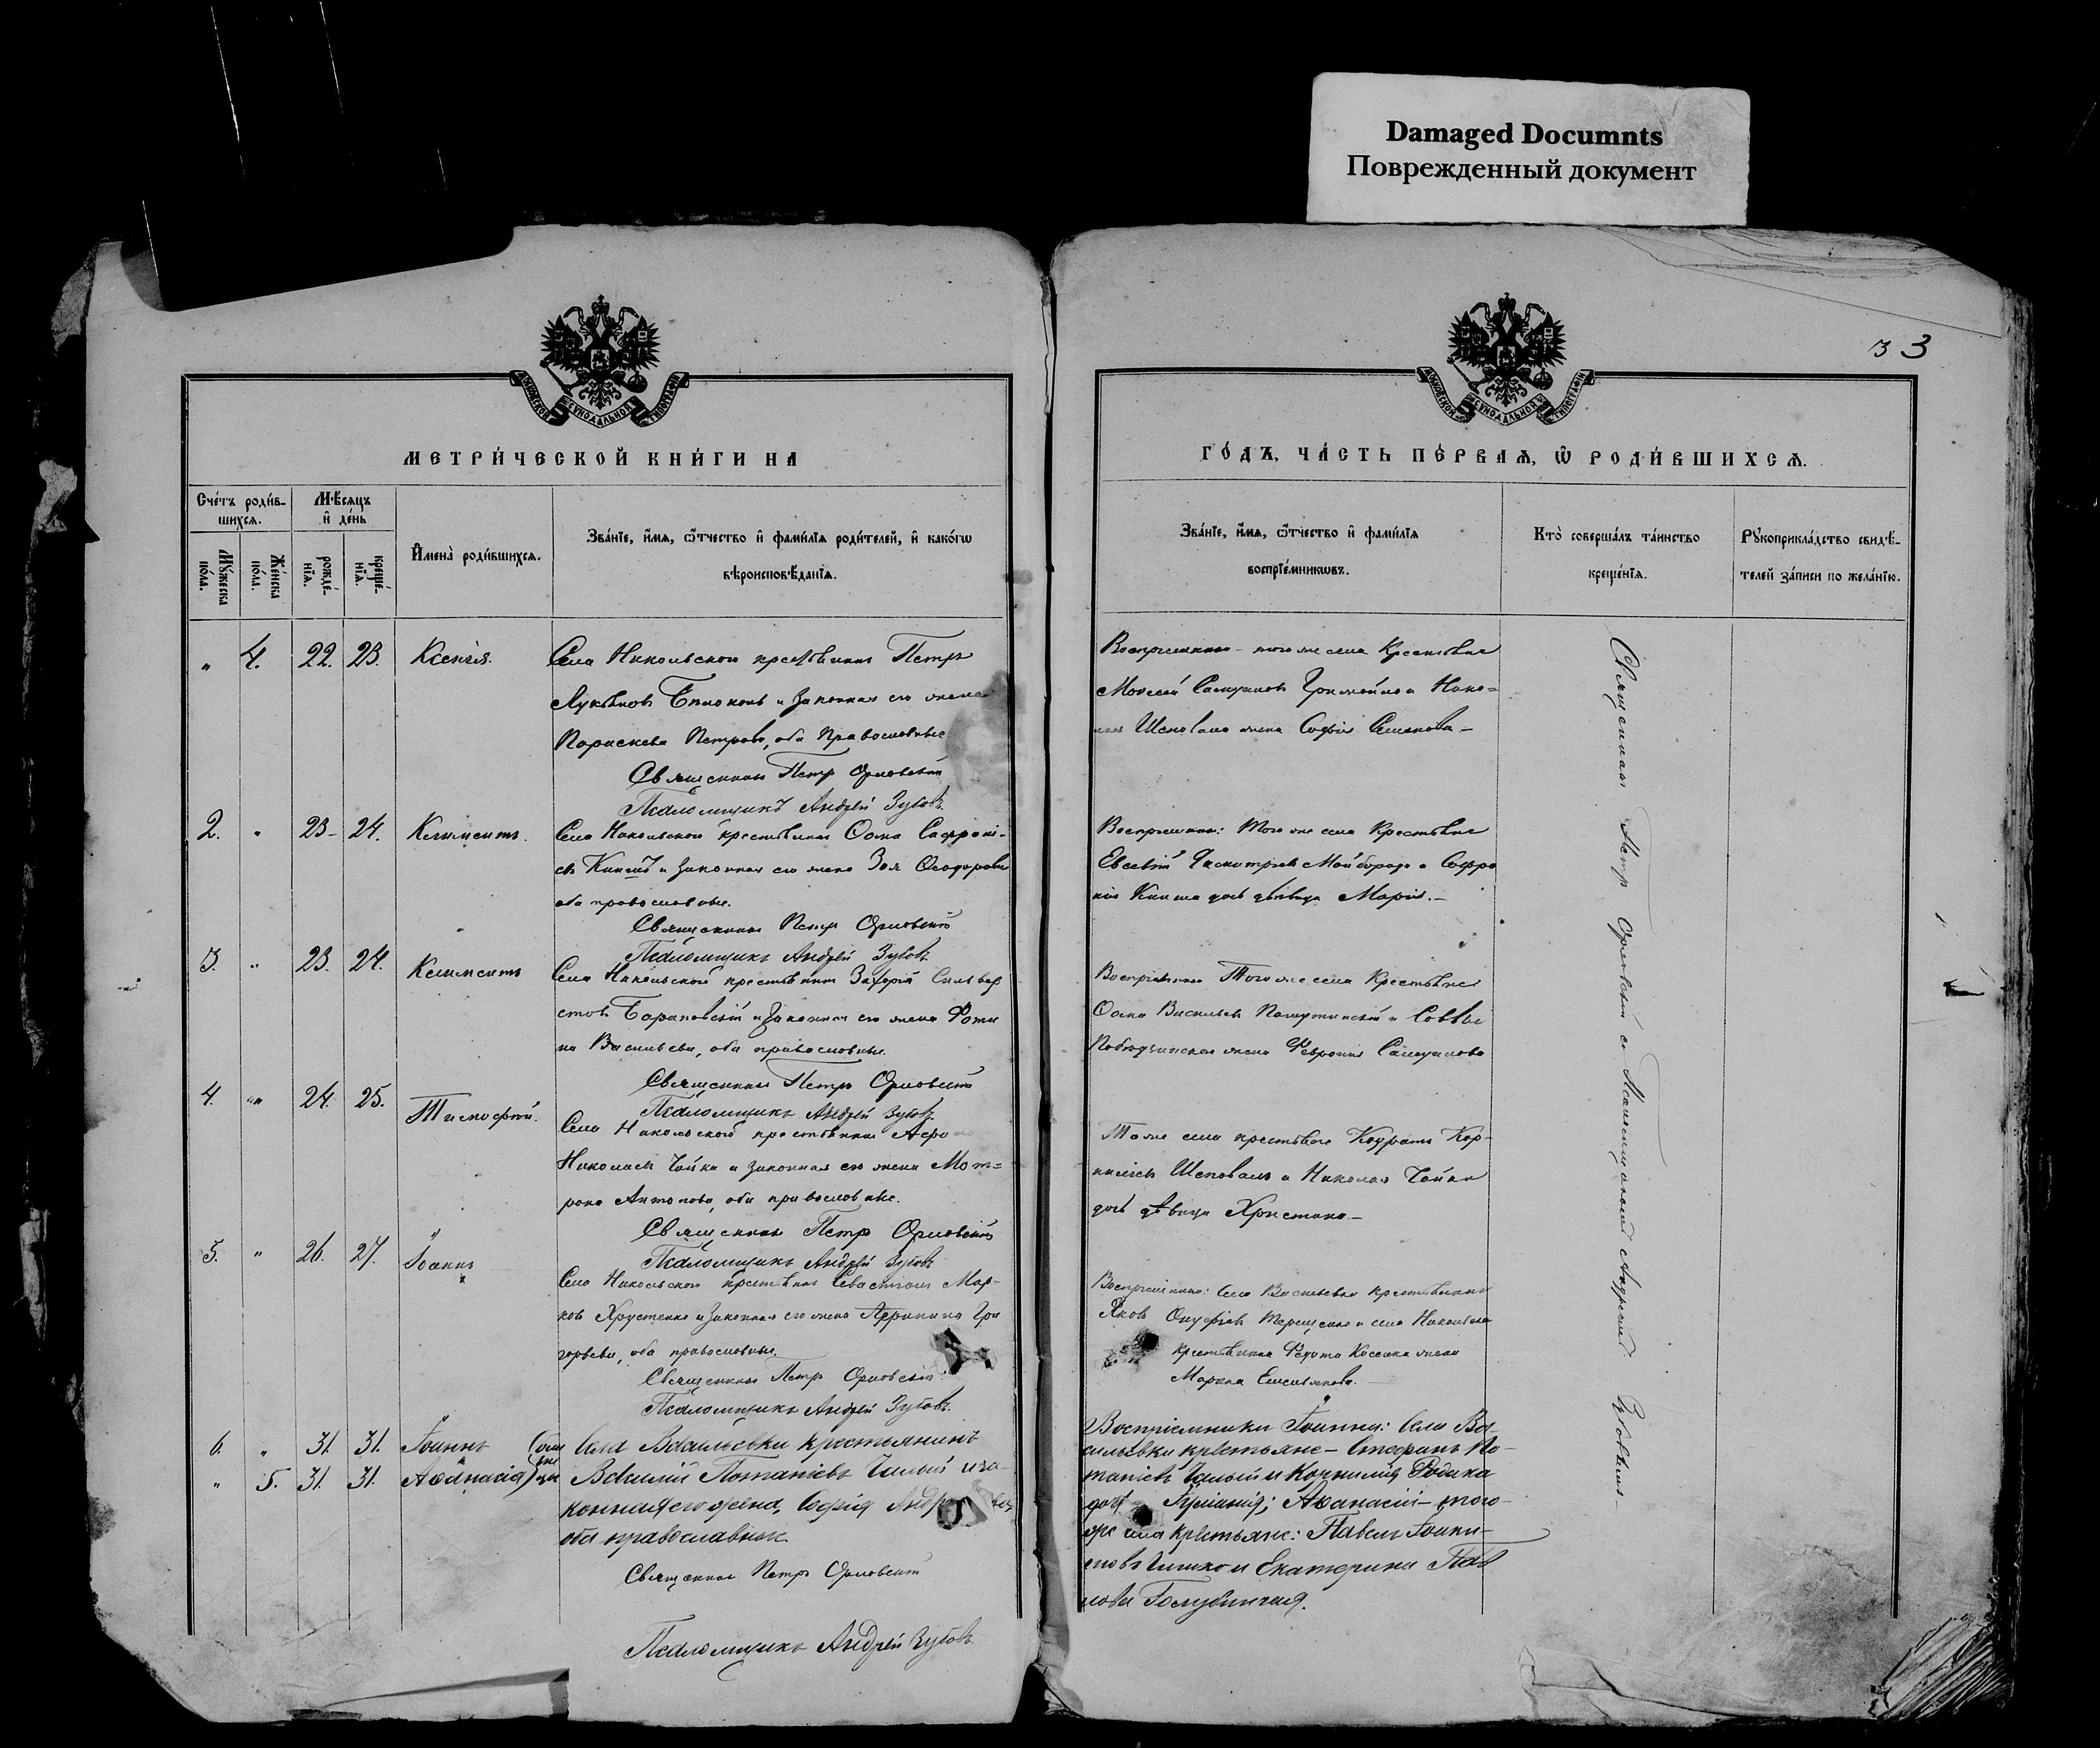 Damaged Documnts
Поврежденный документ
з 3
МОСКОВСКОЙ СѴНОДАЛЬНОЙ ТИПОГРАФІИ
МОСКОВСКОЙ СѴНОДАЛЬНОЙ ТИПОГРАФІИ
МЕТРИ́ЧЕСКОЙ КНИ́ГИ НА
ГО́ДЪ, ЧА́СТЬ ПЕ́РВАѦ, Ѽ РОДИ́ВШИХСѦ.
Сче́тъ роди́в-
шихсѧ.
Мѣ́сяцъ
и҆ де́нь
Мꙋ́жеска по́ла.
Же́нска по́ла.
рожде́-
нїѧ.
креще́-
нїѧ.
И҆мена̀ роди́вшихсѧ.
Зва́нїе, и҆́мѧ, ѻ҆́тчество и҆ фами́лїѧ роди́телей, и҆ како́гѡ
вѣроисповѣ́данїѧ.
Зва́нїе, и҆́мѧ, ѻ҆́тчество и҆ фами́лїѧ
воспрїе́мникѡвъ.
Кто̀ соверша́лъ та́инство
креще́нїѧ.
Рꙋкоприкла́дство свидѣ́-
телей за́писи по жела́нїю.
" 4. 22. 23. Ксенія.
Села Никольскаго крестьянинъ Петръ
Лукьяновъ и законная его жена
Параскева Петрова, оба православные
Священникъ Петръ Орловскій
Псаломщикъ Андрей Зубовъ.
Воспріемники - того же села крестьяне
Моисей Самуиловъ и Нико-
лая жена Софія Семенова -
2. " 23- 24. Климентъ.
Села Никольскаго крестьянинъ Ѳома Софроні-
евъ Книшъ и законная его жена Зоя Ѳеодорова
оба православные.
Священникъ Петръ Орловскій
Псаломщикъ Андрей Зубовъ.
Воспріемники: того же села крестьяне
Евсевій Майборода и Софро
нія Книша дочь дѣвица Марія. -
3. " 23. 24. Климентъ
Села Никольскаго крестьянинъ Захарій Сильвер
стовъ Барановскій и законная его жена Фоти
на Васильева, оба православные.
Священникъ Петръ Орловскій
Псаломщикъ Андрей Зубовъ.
Воспріемники того же села крестьяне
Ѳома Васильевъ и Саввы
жена Феврония Самуилова
4. " 24. 25. Тимофей.
Села Никольскаго крестьянинъ
Николаевъ Чайка и законная его жена Мот-
рона Антонова, оба православные.
Священникъ Петръ Орловскій
Псаломщикъ Андрей Зубовъ
Того же села крестьяне Кодратъ Кор-
ниліевъ Шаповалъ и Николая Чайки
дочь дѣвица Христина -
5. " 26. 27. Іоаннъ
Села Никольскаго крестьянинъ Севастіанъ Мар-
ковъ Хрустенко и законная его жена Агрипина Гри
горьева, оба православные
Священникъ Петръ Орловскій
Псаломщикъ Андрей Зубовъ.
Воспріемники: села Васильевки крестьянинъ
Яковъ Онуфріевъ Терещенко и села Никольска
крестьянина Федота Косенка жена
Марина Емельянова.
6. " 31. 31. Іоаннъ
" 5. 31. 31. Аѳанасія
Села Васильевки крестьянинъ
Василій Потапіевъ Чалый и за-
конная его жена, Софія
оба православные.
Священникъ Петръ Орловскій
Псаломщикъ Андрей Зубовъ.
Воспріемники Іоанна: села Ва-
сильевки крестьяне - Стефанъ По-
тапіевъ Чалый и Корнилія
дочь Іуліанія; Аѳанасіи - того-
же села крестьяне: Павелъ
и Екатерина Пав
лова
Священникъ Петръ Орловскій съ Псаломщикомъ Андреемъ Зубовымъ -